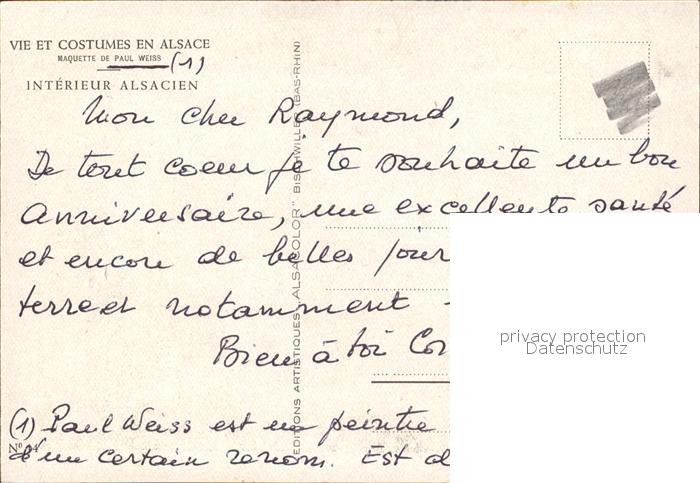 VIE ET COSTUMES EN ALSACE
MAQUETTE DE PAUL WEISS (1)
INTÉRIEUR ALSACIEN
Mon cher Raymond,
De tout coeur je te souhaite un bon
anniversaire, une excellente santé
et encore de belles jour
terre et notamment
Bien à toi Cor
(1) Paul Weiss est un peintre
d'un certain renom. Est d
Nº
EDITIONS ARTISTIQUES "ALSACOLOR" BISCHWILLER (BAS-RHIN)
privacy protection
Datenschutz